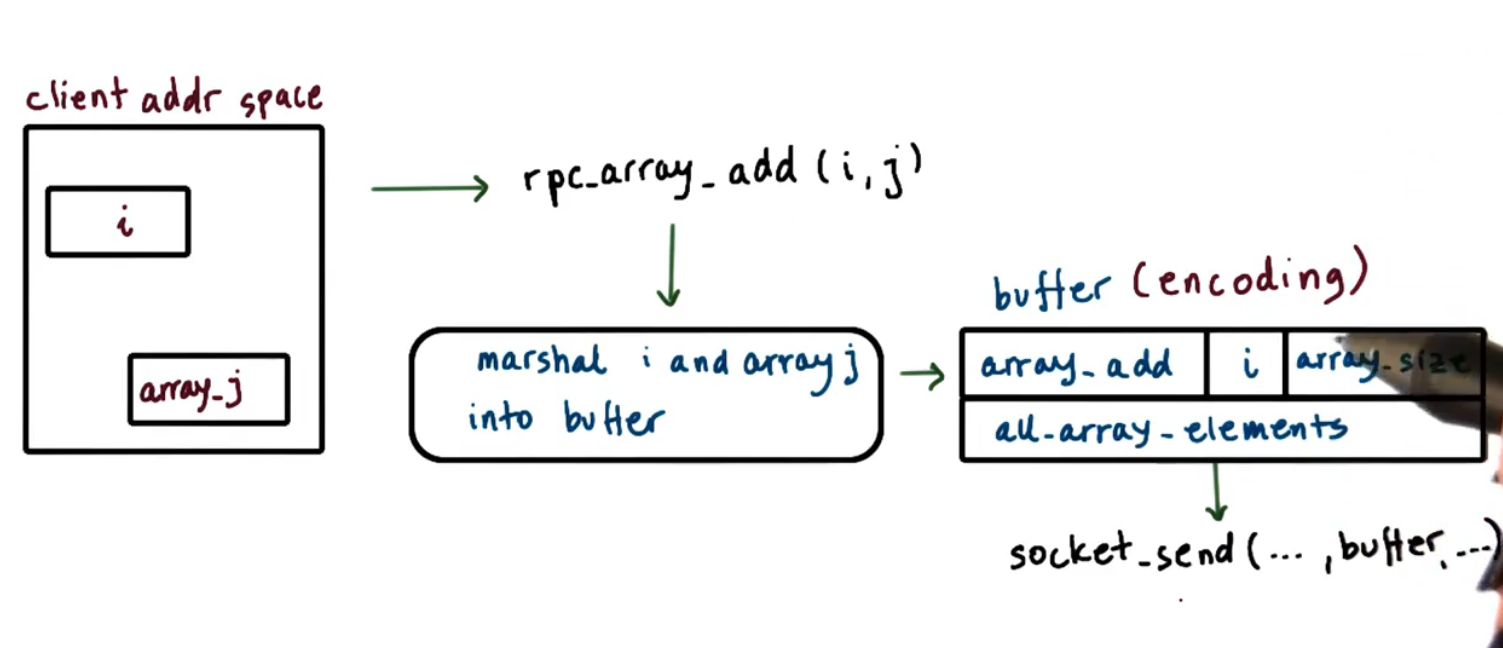 client addr space
i
array_j
rpc_array_add (i,j)
marshal i and array j
into buffer
buffer (encoding)
array_add
i
array_size
all_array_elements
socket_send (... ,buffer, ...)